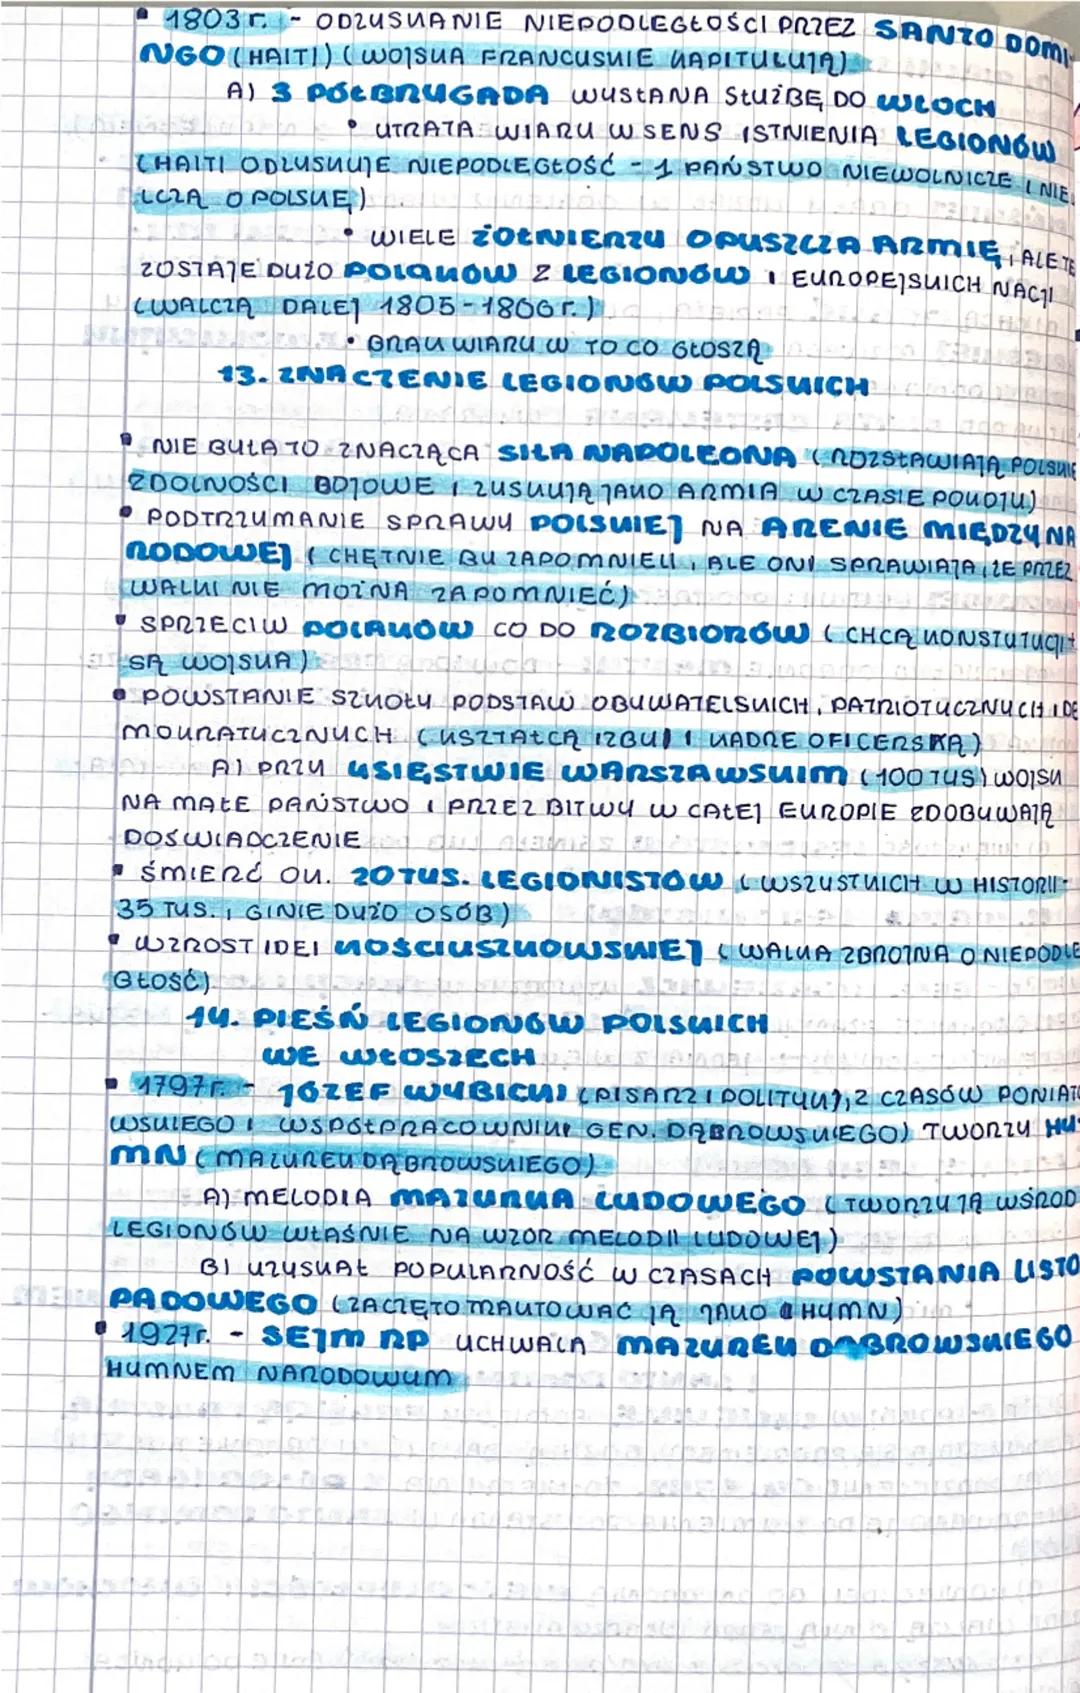 • 1803r. - ODZYSKANIE NIEPODLEGŁOŚCI PRZEZ SANTO DOMI-
NGO (HAITI) (WOJSKA FRANCUSKIE KAPITULUJĄ)
A) 3 PÓŁBRYGADA WYSŁANA SŁUŻBĘ DO WŁOCH
• UTRATA WIARY W SENS ISTNIENIA LEGIONÓW
(HAITI ODZYSKUJE NIEPODLEGŁOŚĆ - 1 PAŃSTWO NIEWOLNICZE I NIE
LCZĄ O POLSKĘ)
• WIELE ŻOŁNIERZY OPUSZCZA ARMIĘ, ALE TE
ZOSTAJE DUŻO POLAKÓW Z LEGIONÓW I EUROPEJSKICH NACJI
(WALCZĄ DALEJ 1805-1806r.)
• BRAK WIARY W TO CO GŁOSZĄ
13. ZNACZENIE LEGIONÓW POLSKICH
• NIE BYŁA TO ZNACZĄCA SIŁA NAPOLEONA (ROZSŁAWIAJĄ POLSKIE
ZDOLNOŚCI BOJOWE I ZYSKUJĄ JAKO ARMIA W CZASIE POKOJU)
• PODTRZYMANIE SPRAWY POLSKIEJ NA ARENIE MIĘDZYNA
RODOWEJ (CHĘTNIE BY ZAPOMNIELI, ALE ONI SPRAWIAJĄ, ŻE PRZEZ
WALKI NIE MOŻNA ZAPOMNIEĆ)
• SPRZECIW POLAKÓW CO DO ROZBIORÓW (CHCĄ KONSTYTUCJI +
SĄ WOJSKA)
• POWSTANIE SZKOŁY PODSTAW OBYWATELSKICH, PATRIOTYCZNYCH I DE
MOKRATYCZNYCH (KSZTAŁCĄ IZBY I KADRĘ OFICERSKĄ)
A) PRZY KSIĘSTWIE WARSZAWSKIM (100 TYS) WOJSK
NA MAŁE PAŃSTWO I PRZEZ BITWY W CAŁEJ EUROPIE ZDOBYWAJĄ
DOŚWIADCZENIE
• ŚMIERĆ OK. 20 TYS. LEGIONISTÓW (WSZYSTKICH W HISTORII -
35 TYS., GINIE DUŻO OSÓB)
• WZROST IDEI KOŚCIUSZKOWSKIEJ (WALKA ZBROJNA O NIEPODLE
GŁOŚĆ)
14. PIEŚŃ LEGIONÓW POLSKICH
WE WŁOSZECH
• 1797r. - JÓZEF WYBICKI (PISARZ I POLITYK), Z CZASÓW PONIATO
WSKIEGO I WSPÓŁPRACOWNIK GEN. DĄBROWSKIEGO) TWORZY HY-
MN (MAZUREK DĄBROWSKIEGO)
A) MELODIA MAZURKA LUDOWEGO (TWORZY JĄ WŚRÓD
LEGIONÓW WŁAŚNIE NA WZÓR MELODII LUDOWEJ)
B) UZYSKAŁ POPULARNOŚĆ W CZASACH POWSTANIA LISTO
PADOWEGO (ZACZĘTO TRAKTOWAĆ JĄ JAKO HYMN)
• 1927r. - SEJM RP UCHWALA MAZUREK DĄBROWSKIEGO
HYMNEM NARODOWYM